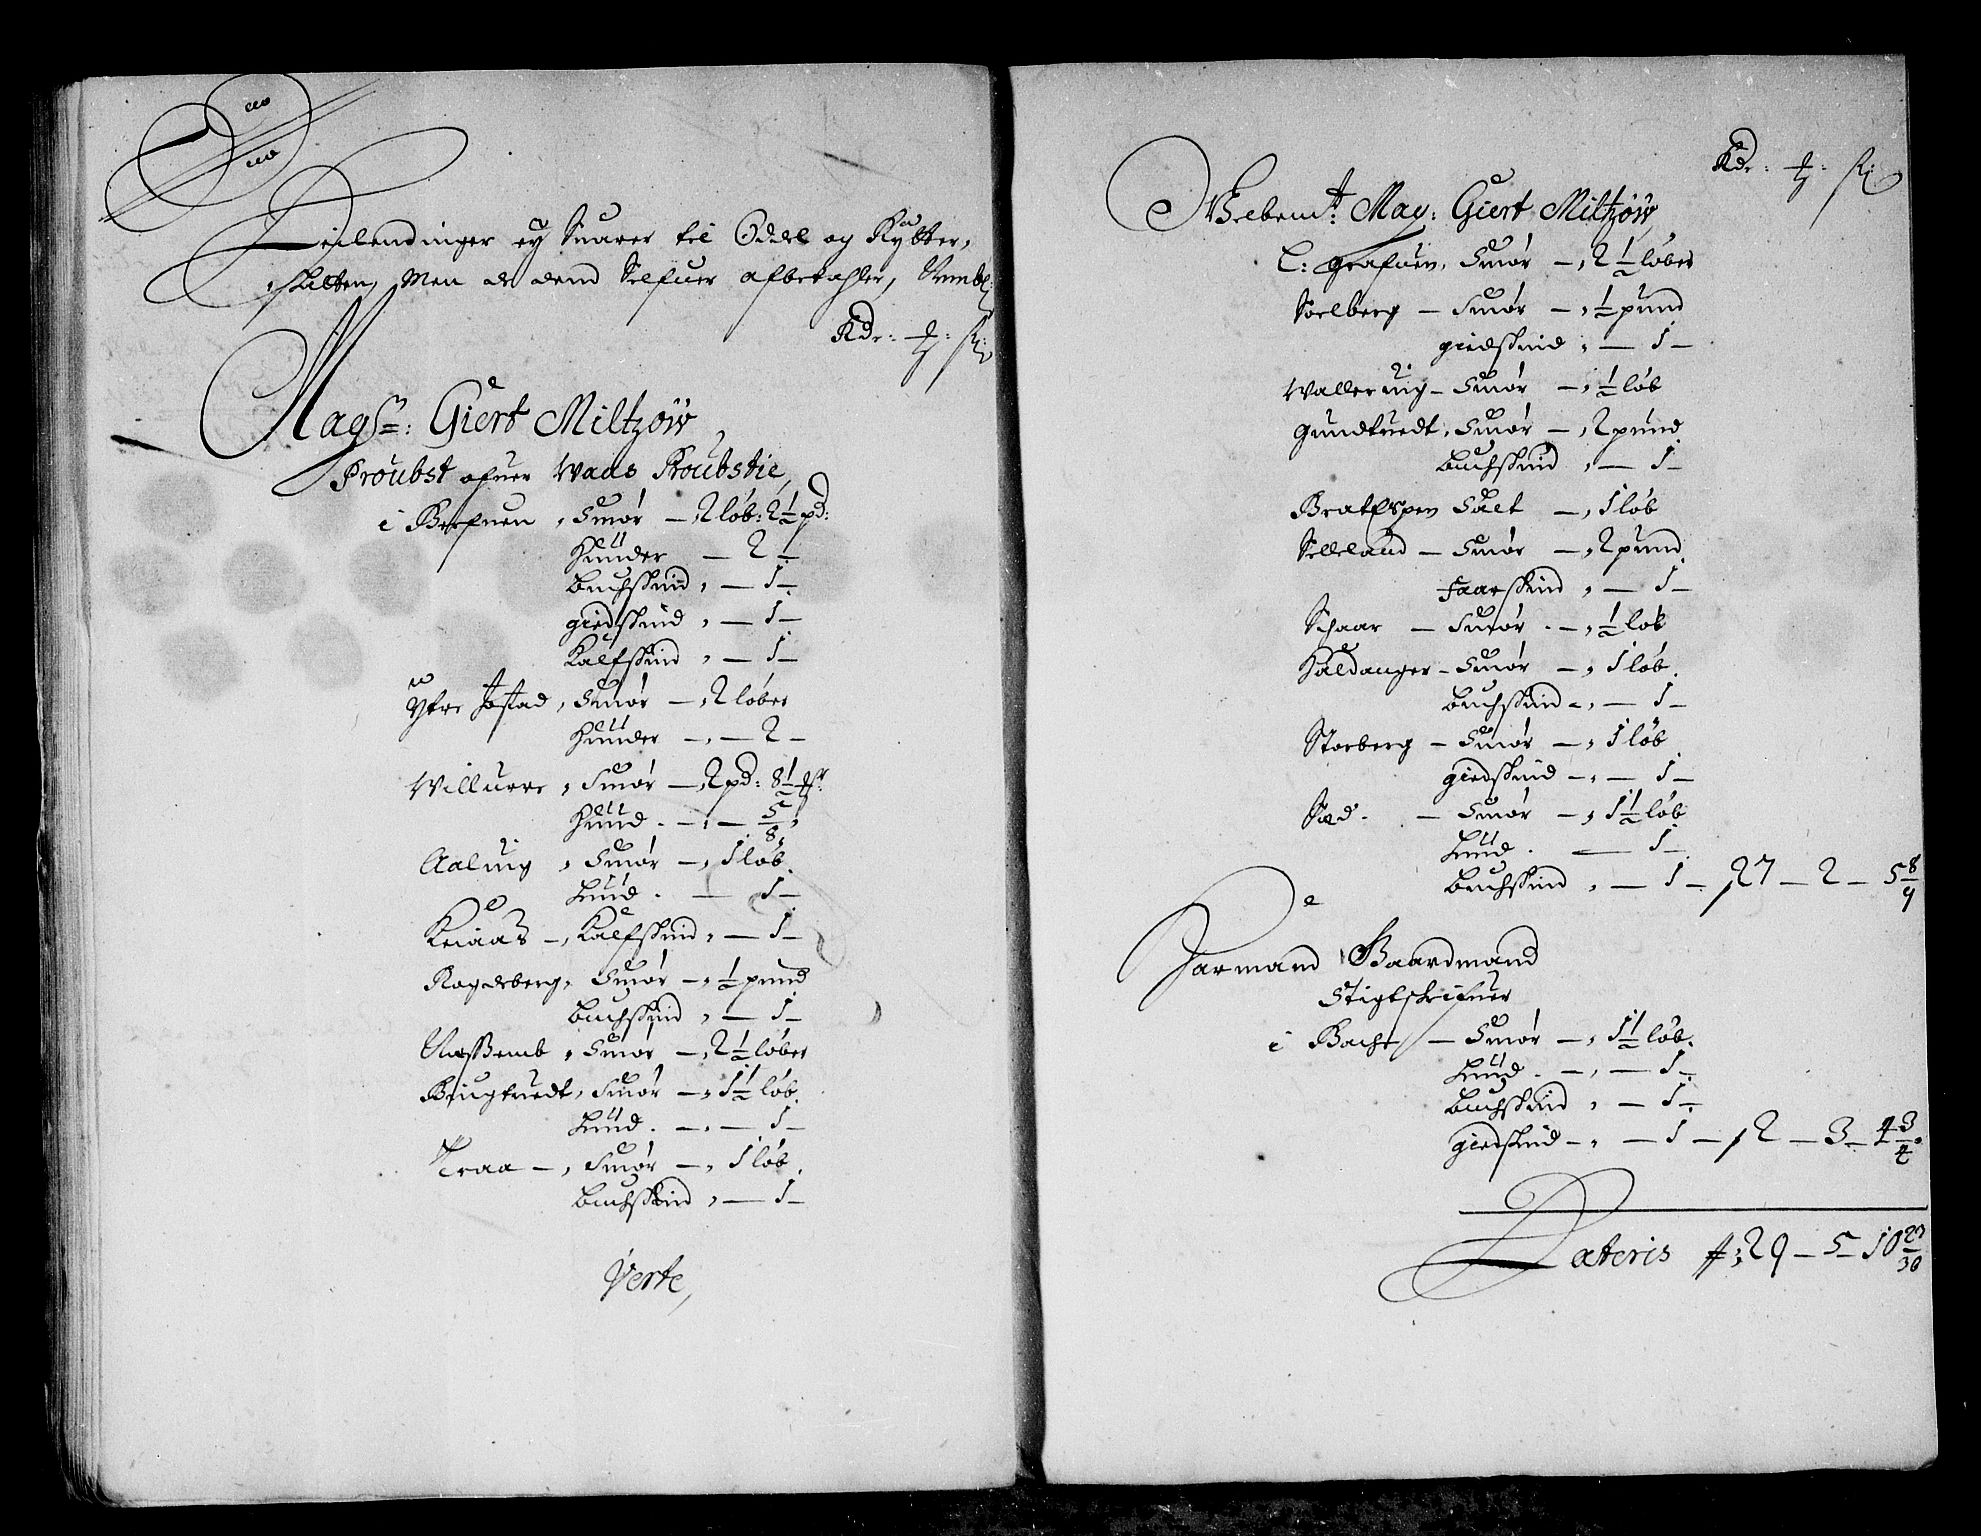 Leilendinger ey Suarer til Oddel og Rytter,
skatten, Men de dend Selfuer afbetahler,
Rdr: ℔: ß:
Magr: Giert Miltzow
Proubst ofuer Waas Proubstie,
i Berfuen, Smør – 2 løb: 2½ pd:
Huuder – 2 –
Buchskind, – 1 –
giedskind, – 1 –
Kalfskind, – 1 –
Ytre Jostad, Smør – 2 løber
Huuder – 2 –
Willurre, Smør – 2 pd: 8½ mr:
Huud. – 5/8,
Aaluig, Smør – 1 løb.
Huud. – 1 –
Keiaas –, Kalfskind, – 1 –
Rogdeberg, Smør – ½ pund
Buchskind, – 1 –
Næssemb, Smør – 2½ løber
Biugtuedt, Smør – 1½ løb.
Huud. – 1 –
Traa –, Smør – 1 løb.
Buchskind, – 1 –
Verte,
Rdr: ℔: ß:
Welbemt: Mag: Giert Miltzow,
L: Grafuen, Smør – 2½ løber
Soelberg – Smør – ½ pund
giedskind, – 1 –
Walleruig – Smør – ½ løb
Gundtuedt, Smør – 2 pund
Buchskind, – 1 –
Bratespen Salt – 1 løb
Selleland – Smør – 2 pund.
Faarskind, – 1 –
Schaar – Smør – ½ løb
Haldanger – Smør – 1 løb.
Buchskind – 1 –
Storberg – Smør – 1 løb.
giedskind – 1 –
Sæd. – Smør – 1½ løb
Huud. – 1 –
Buchskind, – 1 – 27 – 2 – 5 8/9
Jarmand Baardmand
Stigtskrifuer
i Bache – Smør – 1½ løb.
Huud. – 1 –
Buchskind, – 1 –
giedskind – 1 – 2 – 3 – 4 3/4.
Lateris 29 – 5 – 10 23/36